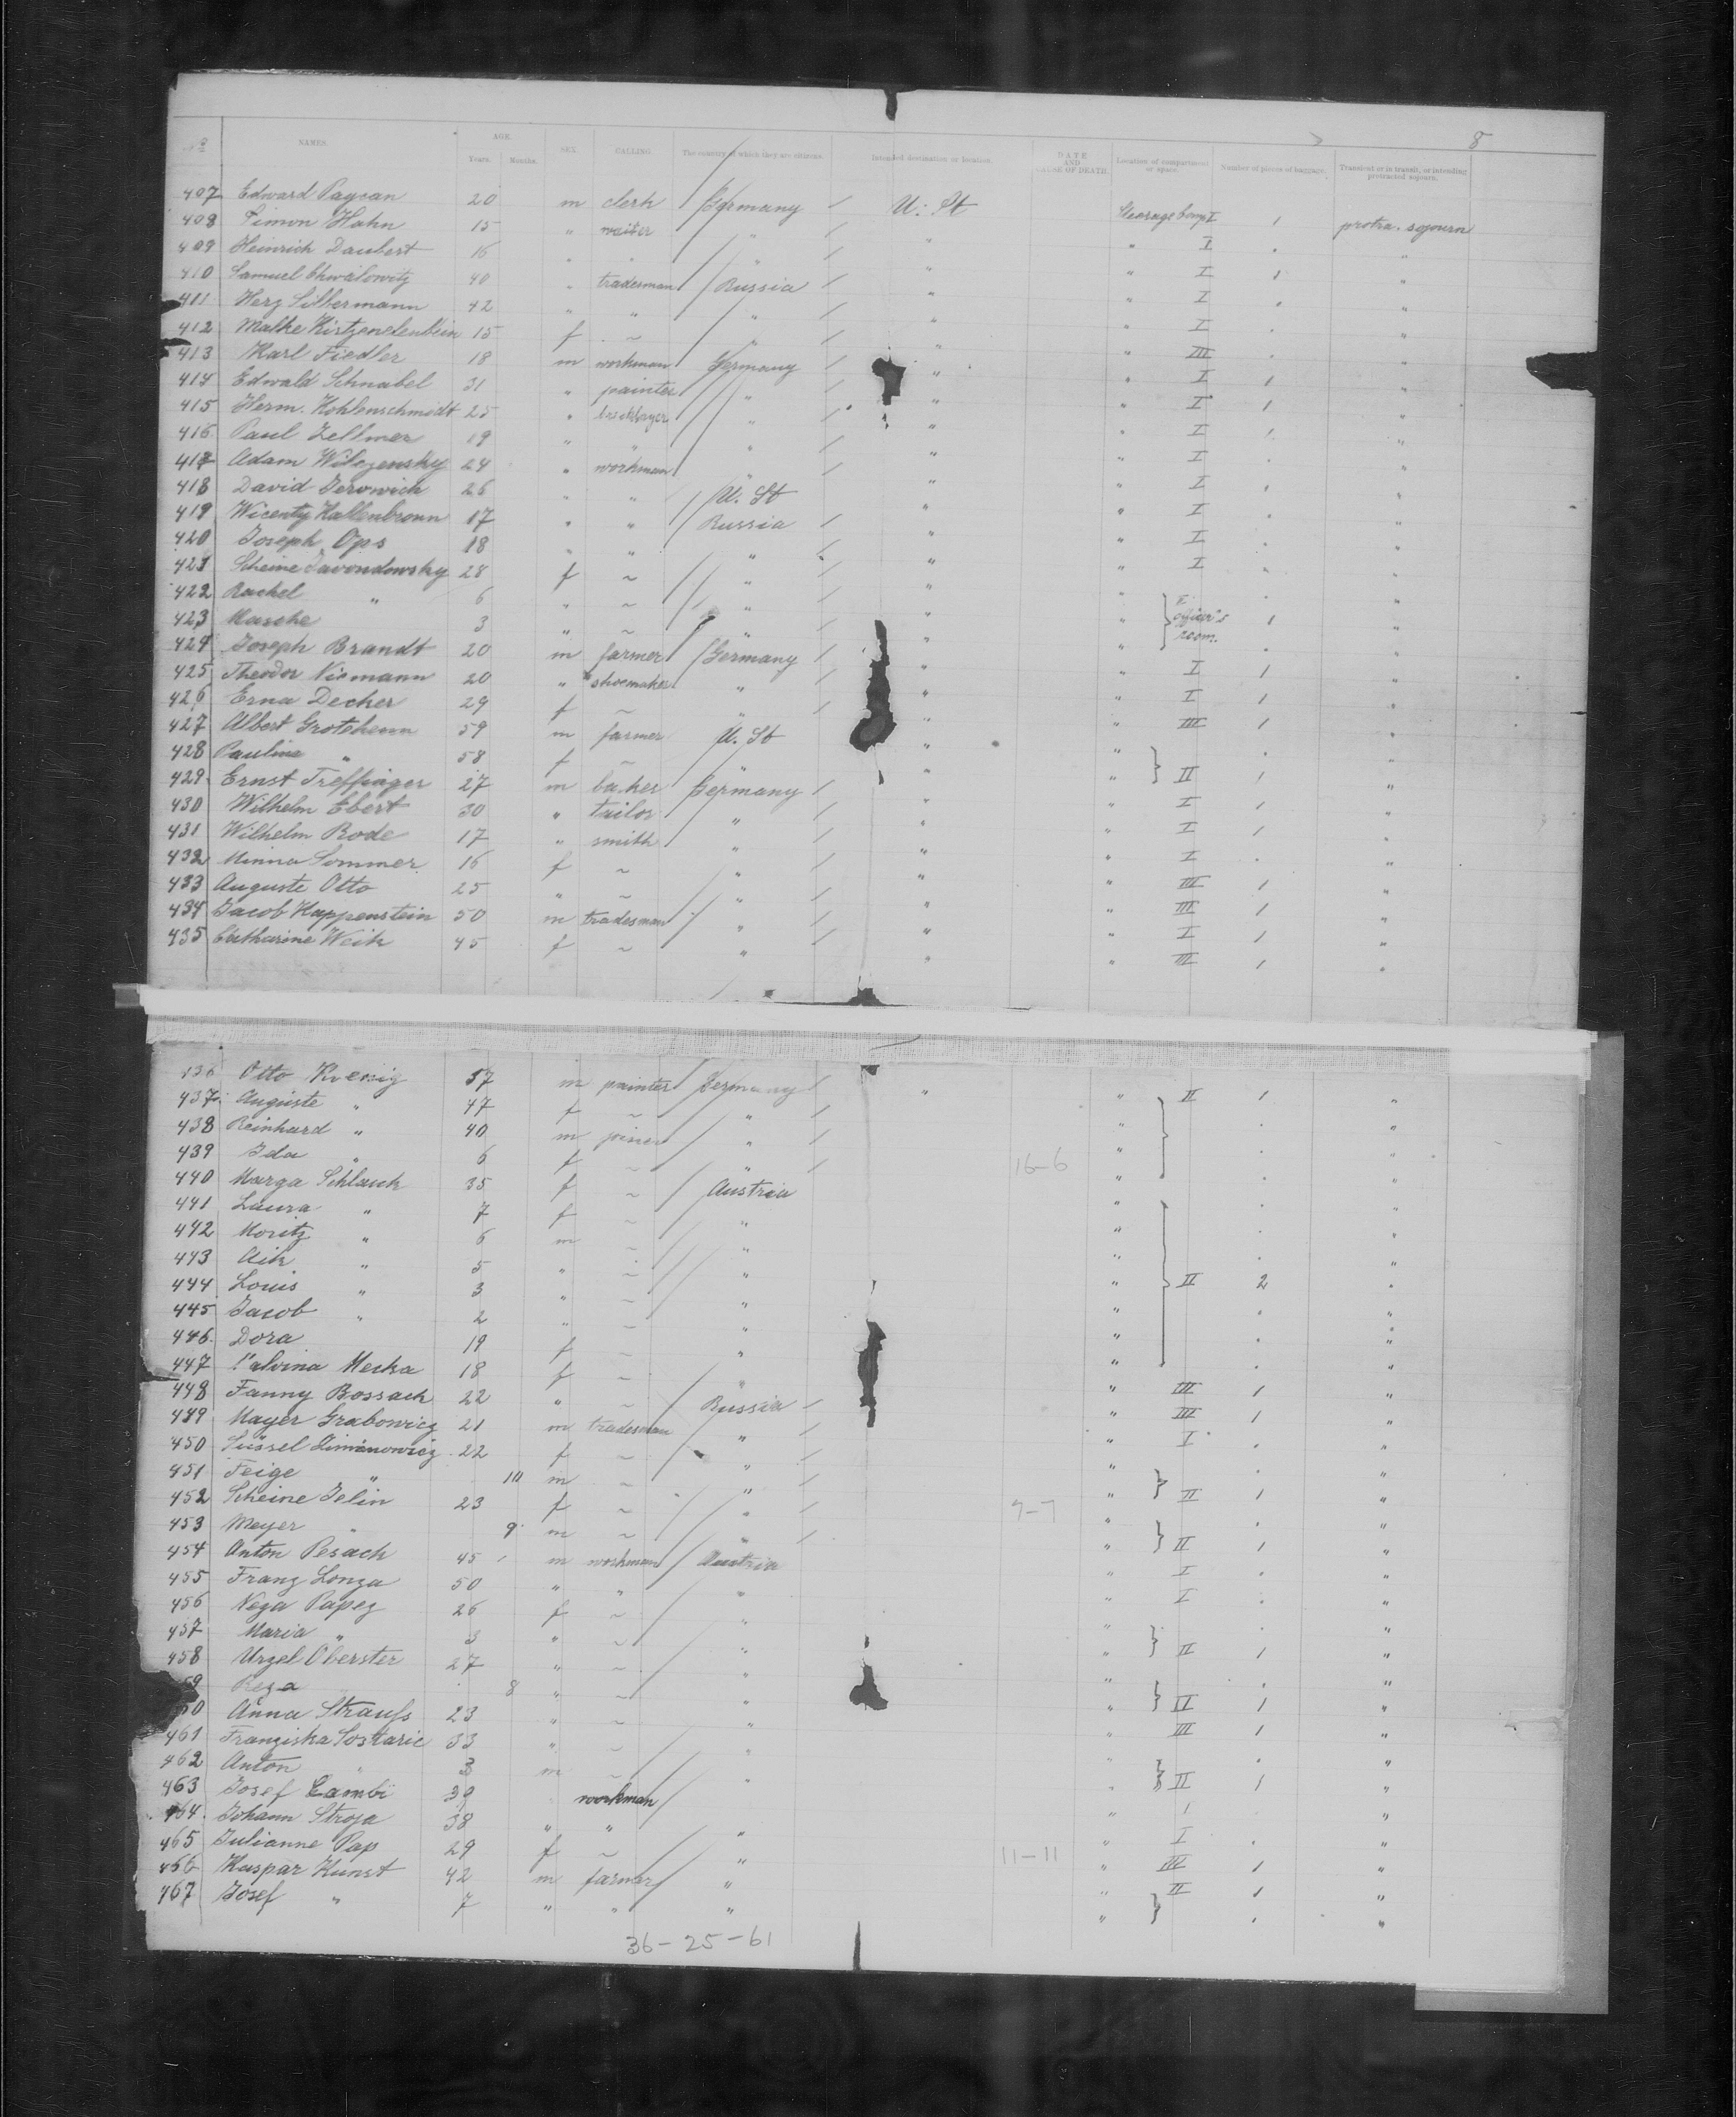 8
No NAMES. AGE. Years. Months. SEX. CALLING. The country of which they are citizens. Intended destination or location. DATE AND CAUSE OF DEATH. Location of compartment or space. Number of pieces of baggage. Transient or in transit, or intending protracted sojourn.
407 Edward Paycan 20 m clerk Germany U: St Steerage Comp I 1 protra. sojourn
408 Simon Hahn 15 " waiter " " " I . "
409 Heinrich Daubert 16 " " " " " I 1 "
410 Samuel Chwalowitz 40 " tradesman Russia " " I . "
411 Herz Silbermann 42 " " " " " I . "
412 Malke 15 f ~ " " " III . "
413 Karl Fiedler 18 m workman Germany " " I 1 "
414 Edwald Schnabel 31 " painter " " " I 1 "
415 Herm. Kohlenschmidt 25 " bricklayer " " " I 1 "
416 Paul Zellmer 19 " " " " " I . "
417 Adam Wilczensky 24 " workman " " " I . "
418 David Jerowich 26 " " U. St " " I . "
419 Wicenty Kallenbronn 17 " " Russia " " I . "
420 Joseph Ops 18 " " " " " I . "
421 Scheine Zavondowsky 28 f ~ " " " . "
422 Rachel " 6 " ~ " " " officer's room. 1 "
423 Masche 3 " ~ " " " . "
424 Joseph Brandt 20 m farmer Germany " " I 1 "
425 Theodor Niemann 20 " shoemaker " " " I 1 "
426 Erna Decher 29 f ~ " " " III 1 "
427 Albert Grotehenn 59 m farmer U. St " " . "
428 Pauline " 58 f ~ " " " II 1 "
429 Ernst Treffinger 27 m baker Germany " " I 1 "
430 Wilhelm Ebert 30 " tailor " " " I 1 "
431 Wilhelm Rode 17 " smith " " " I . "
432 Minna Sommer 16 f ~ " " " III 1 "
433 Auguste Otto 25 " ~ " " " III 1 "
434 Jacob Kappenstein 50 m tradesman " " " I 1 "
435 Catharine Weik 45 f ~ " " " III 1 "
436 Otto Koenig 37 m painter Germany " " II 1 "
437 Auguste " 47 f ~ " " . "
438 Reinhard " 40 m joiner " " . "
439 Ida " 6 f ~ " 16-6 " . "
440 Marga Schlauch 35 f ~ Austria " . "
441 Laura " 7 f ~ " " . "
442 Moritz " 6 m ~ " " . "
443 Aik " 5 " ~ " " II 2 "
444 Louis " 3 " ~ " " . "
445 Jacob " 2 " ~ " " . "
446 Dora 19 f ~ " " . "
447 Malvina Meska 18 f ~ " " III 1 "
448 Fanny Bossack 22 " ~ Russia " III 1 "
449 Mayer Grabowicz 21 m tradesman " " I . "
450 Süssel Zimanowicz 22 f ~ " " . "
451 Feige " 10 m ~ " " II 1 "
452 Scheine Jelin 23 f ~ " 7-7 " . "
453 Meyer " 9 m ~ " " II 1 "
454 Anton Pesach 45 m workman Austria " I . "
455 Franz Longa 50 " " " " I . "
456 Neza Papez 26 f ~ " " . "
457 Maria " 3 " ~ " " II 1 "
458 Urzel Oberster 27 " ~ " " . "
59 Reza 8 " ~ " " II 1 "
60 Anna Strauss 23 " ~ " " III 1 "
461 Franziska Sostaric 33 " ~ " " . "
462 Anton " 3 m ~ " " II 1 "
463 Josef Cambi 39 workman " 1 "
464 Johann Stroja 38 " " " " I . "
465 Julianne Pap 29 f ~ " 11-11 " III 1 "
466 Kaspar Kunst 42 m farmer " " II 1 "
467 Josef " 7 " " " " . "
36-25-61